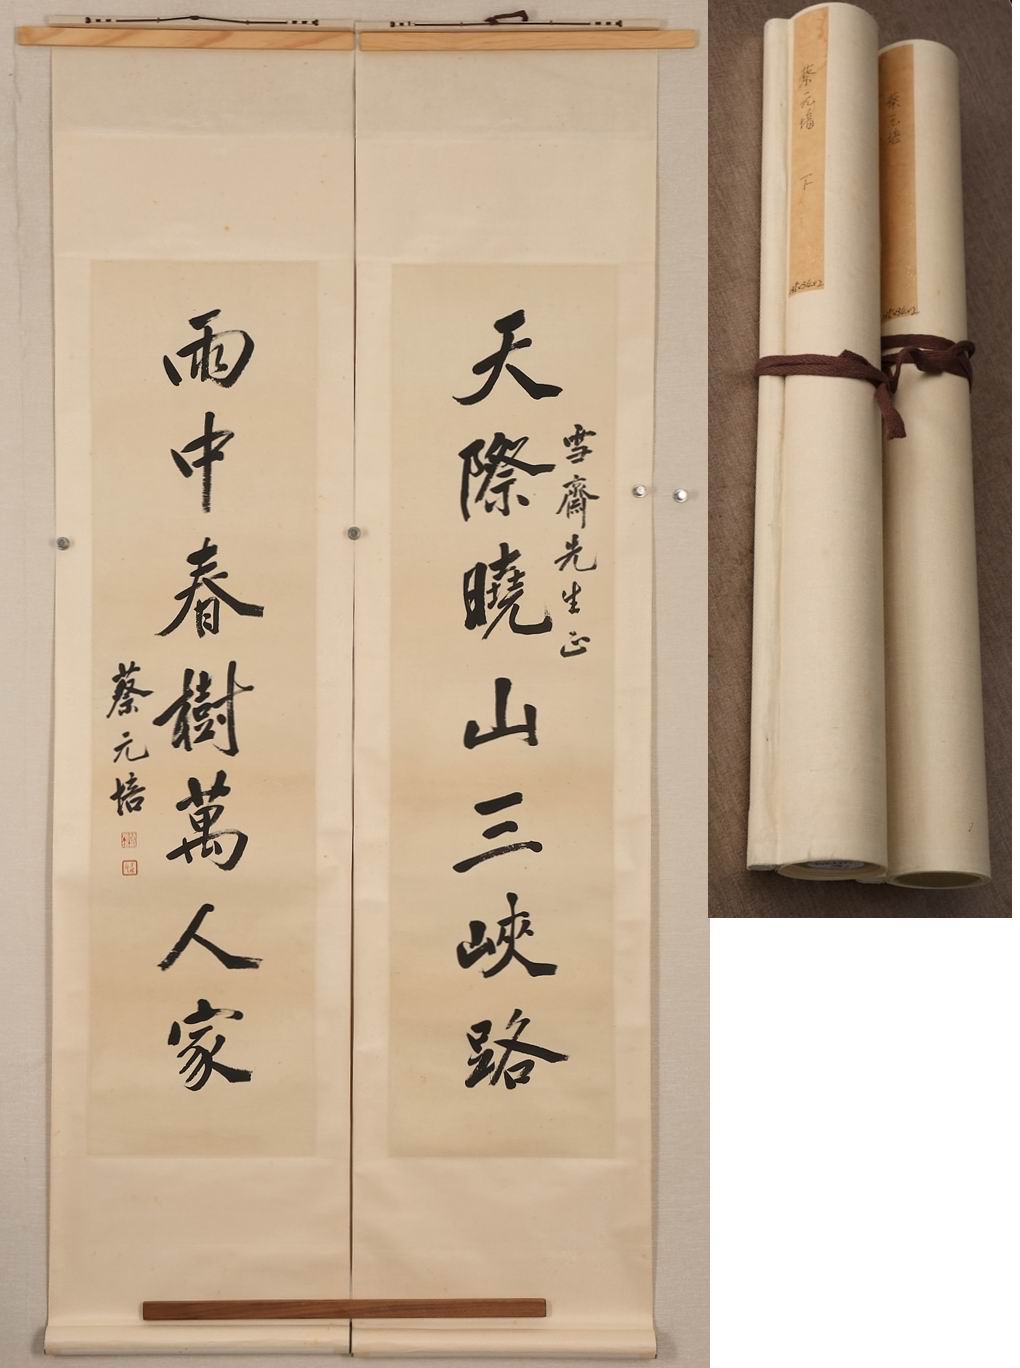 天際曉山三峽路
雪齋先生正
雨中春樹萬人家
蔡元培
蔡元培 下
蔡元培